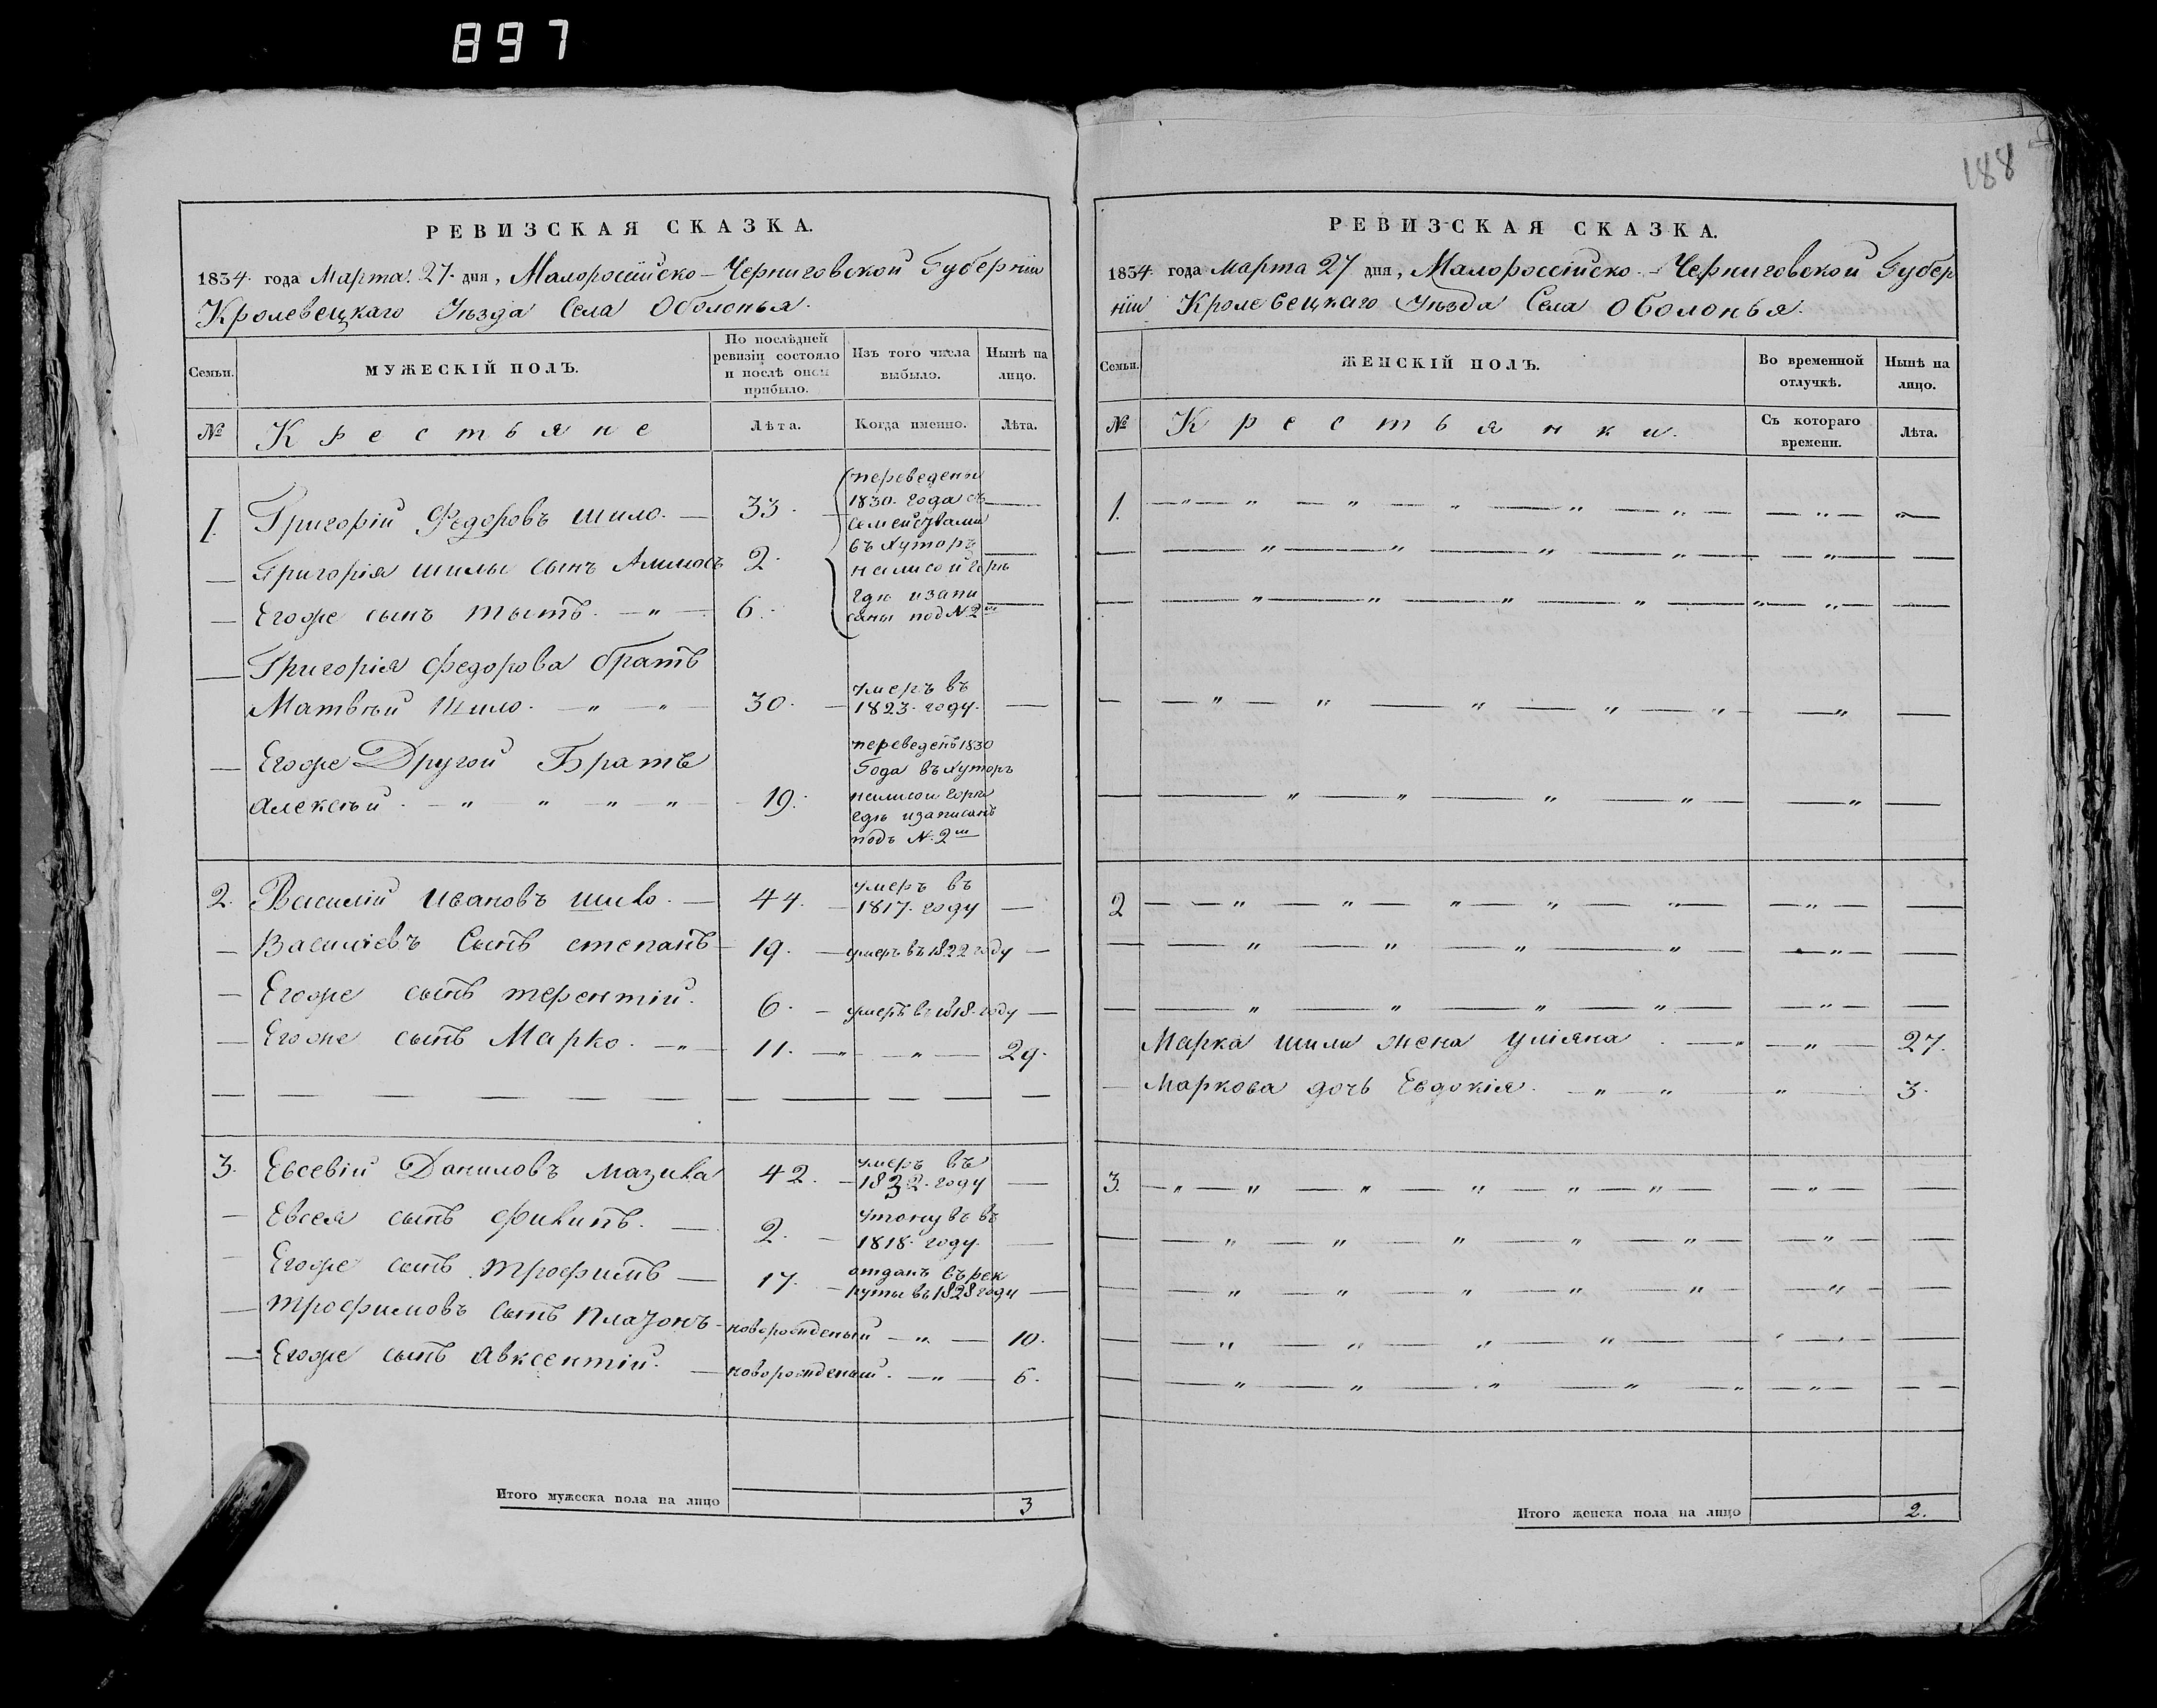 897
188
РЕВИЗСКАЯ СКАЗКА.
1834 года Марта 27 дня, Малоросійско-Черниговской Губерніи
Кролевецкаго Уѣзда Села Оболонья.
Семьи. МУЖЕСКІЙ ПОЛЪ. По послѣдней ревизіи состояло и послѣ оной прибыло. Изъ того числа выбыло. Нынѣ на лицо.
№ Крестьяне Лѣта. Когда именно. Лѣта.
1. Григорій Федоровъ шило. — 33. переведены
1830. года съ
семействами
въ Хуторъ
— Григорія шилы сынъ 2.
— Егоже сынъ 6. гдѣ изапи
саны под N 2м
— Григорія Федорова братъ
Матвѣй Шило. — " — " — 30. — умеръ въ
1823. году. —
— Егоже Другой Братъ переведенъ 1830
Года въ Хуторъ
Алексѣй. — " " — " — " — 19.
гдѣ изаписанъ
подъ N. 2м
2. Василій Ивановъ шило. — 44. — умеръ въ
1817. году —
— Василіевъ Сынъ степанъ — 19. — умеръ въ 1822 году —
— Егоже сынъ терентій. 6. — умеръ въ 1818. году —
— Егоже сынъ Марко. — " — 11. — " — " — 29.
3. Евсевій Даниловъ мазика 42. — умеръ въ
1832. году —
— Евсея сынъ Филипъ. — 2. — утонувъ въ
1818. году. —
— Егоже сынъ трофимъ — 17. — отданъ въ рек
руты въ 1828 году —
— трофимовъ сынъ платонъ — новорожденый — " — 10.
— Егоже сынъ Авксентій. — новорожденый. — " — 6.
Итого мужеска пола на лицо 3
РЕВИЗСКАЯ СКАЗКА.
1834 года марта 27 дня, Малороссійско-Черниговской Губер
ніи Кролевецкаго Уѣзда Села Оболонья.
Семьи. ЖЕНСКІЙ ПОЛЪ. Во временной отлучкѣ. Нынѣ на лицо.
№ Крестьянки. Съ котораго времени. Лѣта.
1.
2
Марка шила жена уліяна. — " — " — 27.
— Маркова дочь Евдокія. — " — " — " — 3.
3.
Итого женска пола на лицо 2.